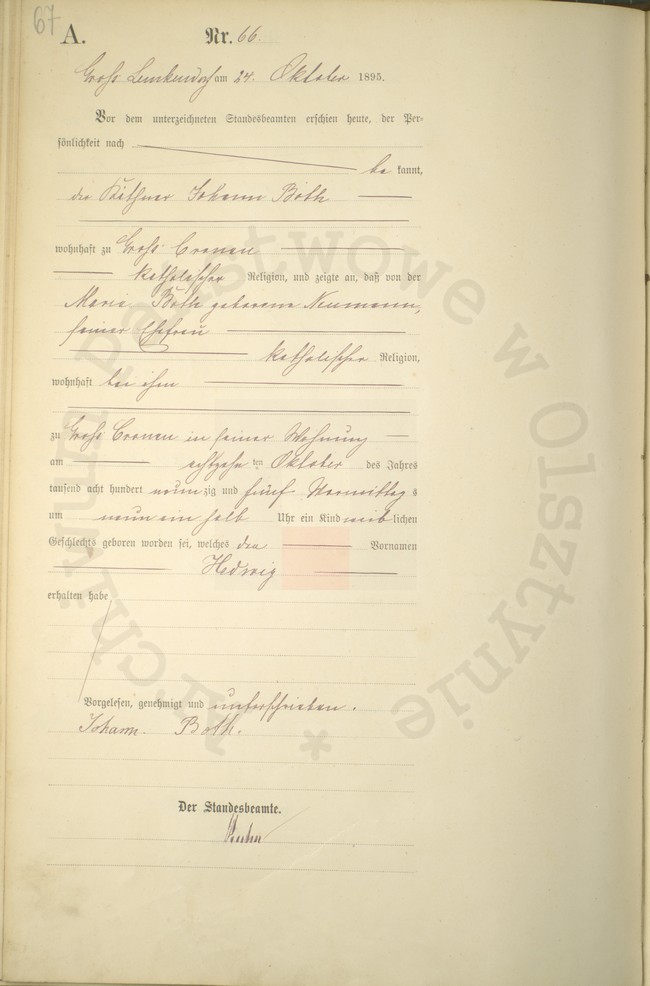 67
A. Nr. 66.
Gross Lemkendorf am 24. Oktober 1895.
Vor dem unterzeichneten Standesbeamten erschien heute, der Per-
sönlichkeit nach
be kannt,
der Käthner Johann Both
wohnhaft zu Gross Cronau
katholischer Religion, und zeigte an, daß von der
Maria Both geborene Neumann,
seiner Ehefrau
katholischer Religion,
wohnhaft bei ihm
zu Gross Cronau in seiner Wohnung
am achtzehn ten Oktober des Jahres
tausend acht hundert neun zig und fünf Vormittag s
um neun ein halb Uhr ein Kind weib lichen
Geschlechts geboren worden sei, welches den Vornamen
Hedwig
erhalten habe
Vorgelesen, genehmigt und unterschrieben.
Johann Both.
Der Standesbeamte.
Archiwum Państwowe w Olsztynie *